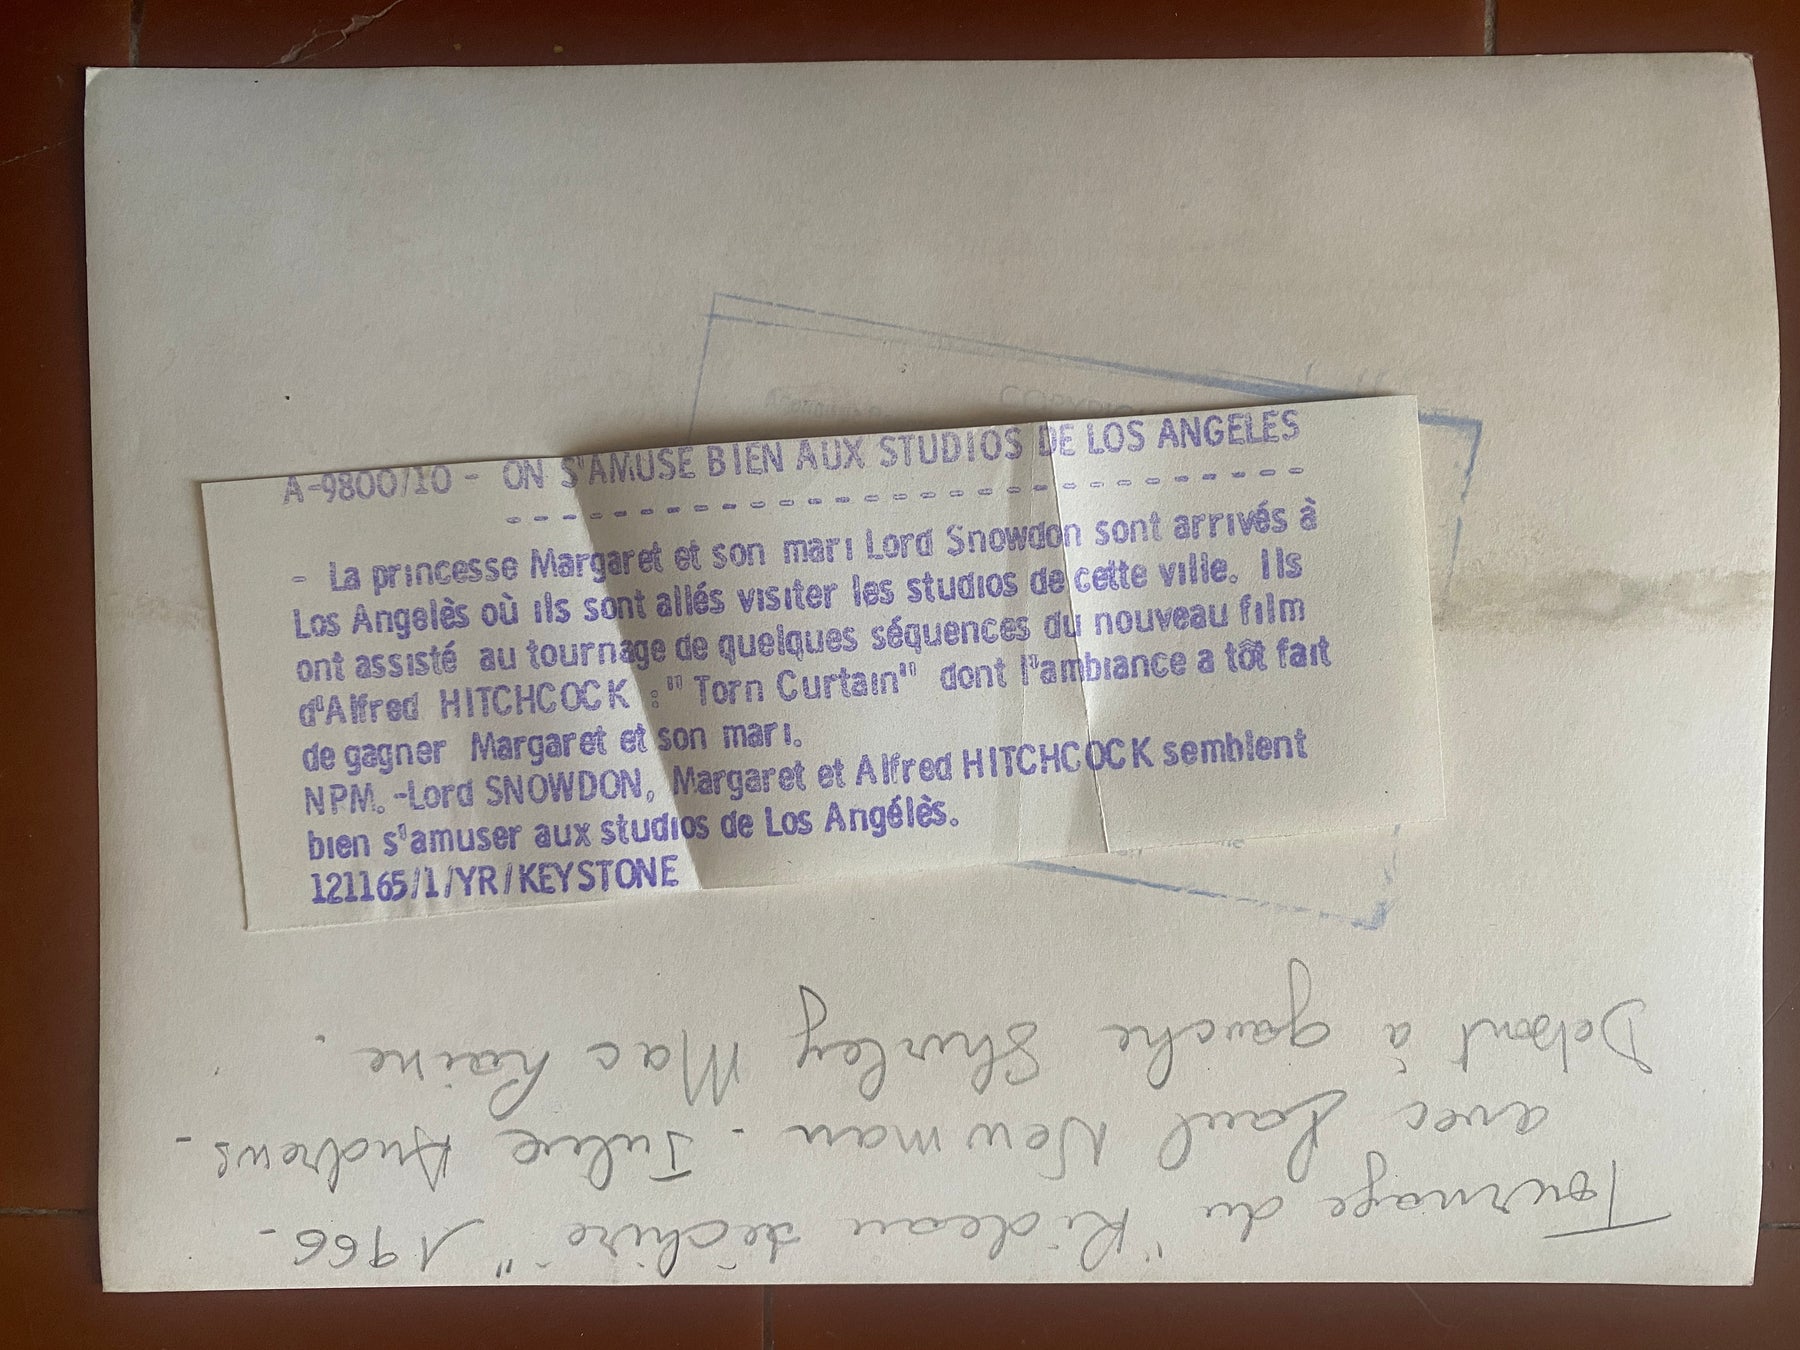 COPYRIG
A-9800/10 - ON S'AMUSE BIEN AUX STUDIOS DE LOS ANGELES
- La princesse Margaret et son mari Lord Snowdon sont arrivés à
Los Angelès où ils sont allés visiter les studios de cette ville. Ils
ont assisté au tournage de quelques séquences du nouveau film
d'Alfred HITCHCOCK :" Torn Curtain" dont l'ambiance a tôt fait
de gagner Margaret et son mari.
NPM. -Lord SNOWDON, Margaret et Alfred HITCHCOCK semblent
bien s'amuser aux studios de Los Angélès.
121165/1/YR/KEYSTONE
Tournage du "Rideau déchiré" 1966-
avec Paul Newman - Julie Andrews-
Debout à gauche Shirley Mac Laine.